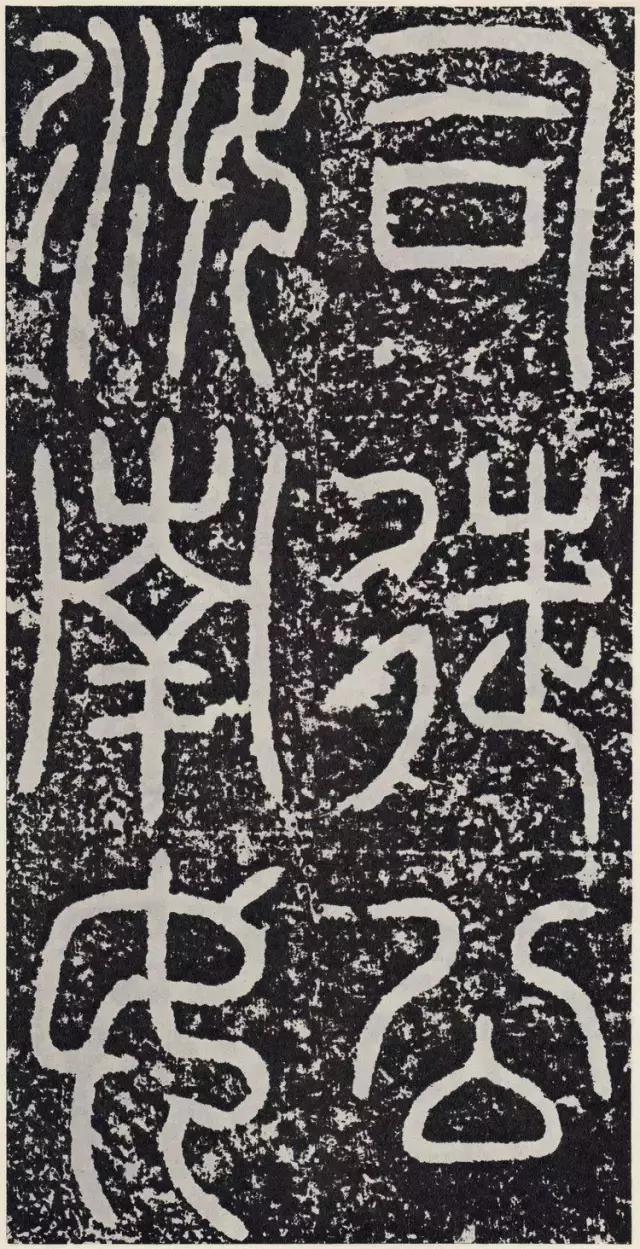 司徒公
汝南女